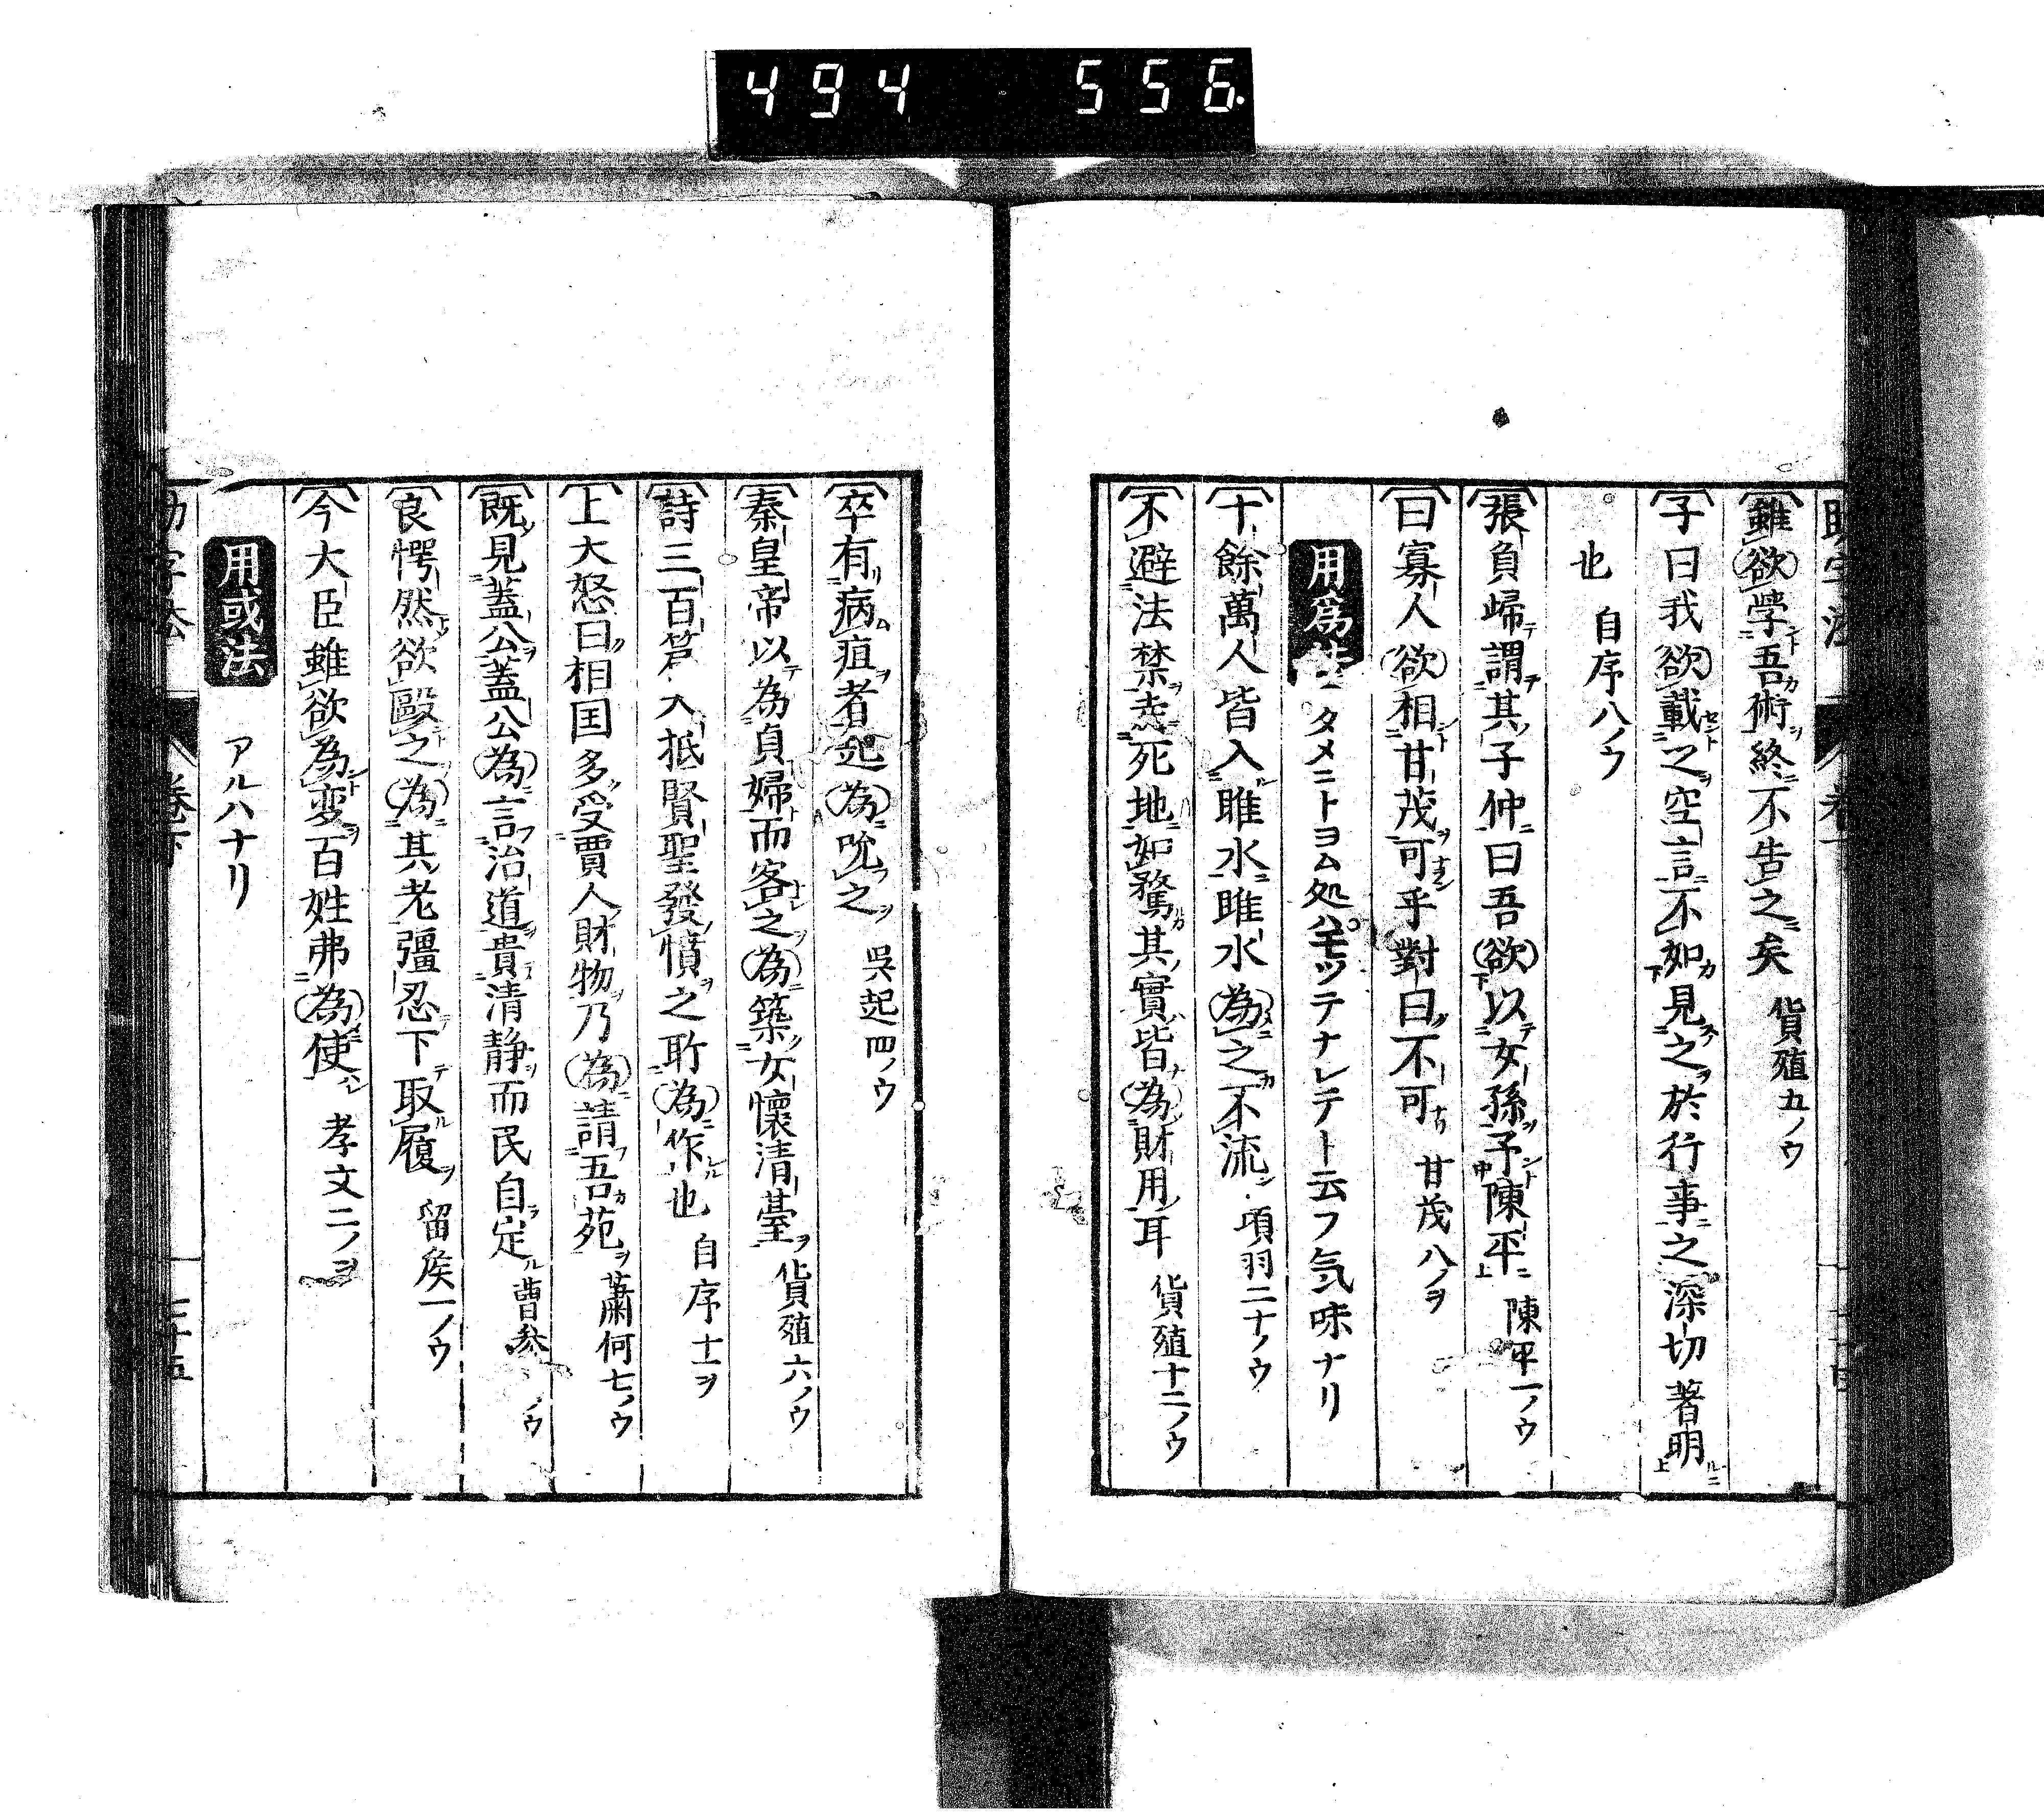 494 556
雖欲学吾術終不告之矣 貨殖五ノウ
子曰我欲載之空言不如見之於行事之深切著明
也 自序八ノウ
張負歸謂其子仲曰吾欲以女孫予陳平 陳平一ノウ
曰寡人欲相甘茂可乎對曰不可 甘茂八ノヲ
用爲法 タメニトヨム処ハモツテナレテト云フ気味ナリ
十餘萬人皆入睢水睢水為之不流 項羽二十ノウ
不避法禁走死地如騖其實皆為財用耳 貨殖十二ノウ
卒有病疽者起為吮之 吳起四ノウ
秦皇帝以為貞婦而客之為築女懷清臺 貨殖六ノウ
詩三百篇大抵賢聖發憤之所為作也 自序十一ヲ
上大怒曰相国多受賈人財物乃為請吾苑 蕭何七ノウ
既見蓋公蓋公為言治道貴清静而民自定 曹参 ノウ
良愕然欲毆之為其老彊忍下取履 留矦一ノウ
今大臣雖欲為変百姓弗為使 孝文二ノヲ
用或法 アルハナリ
助字法 卷下 七十五